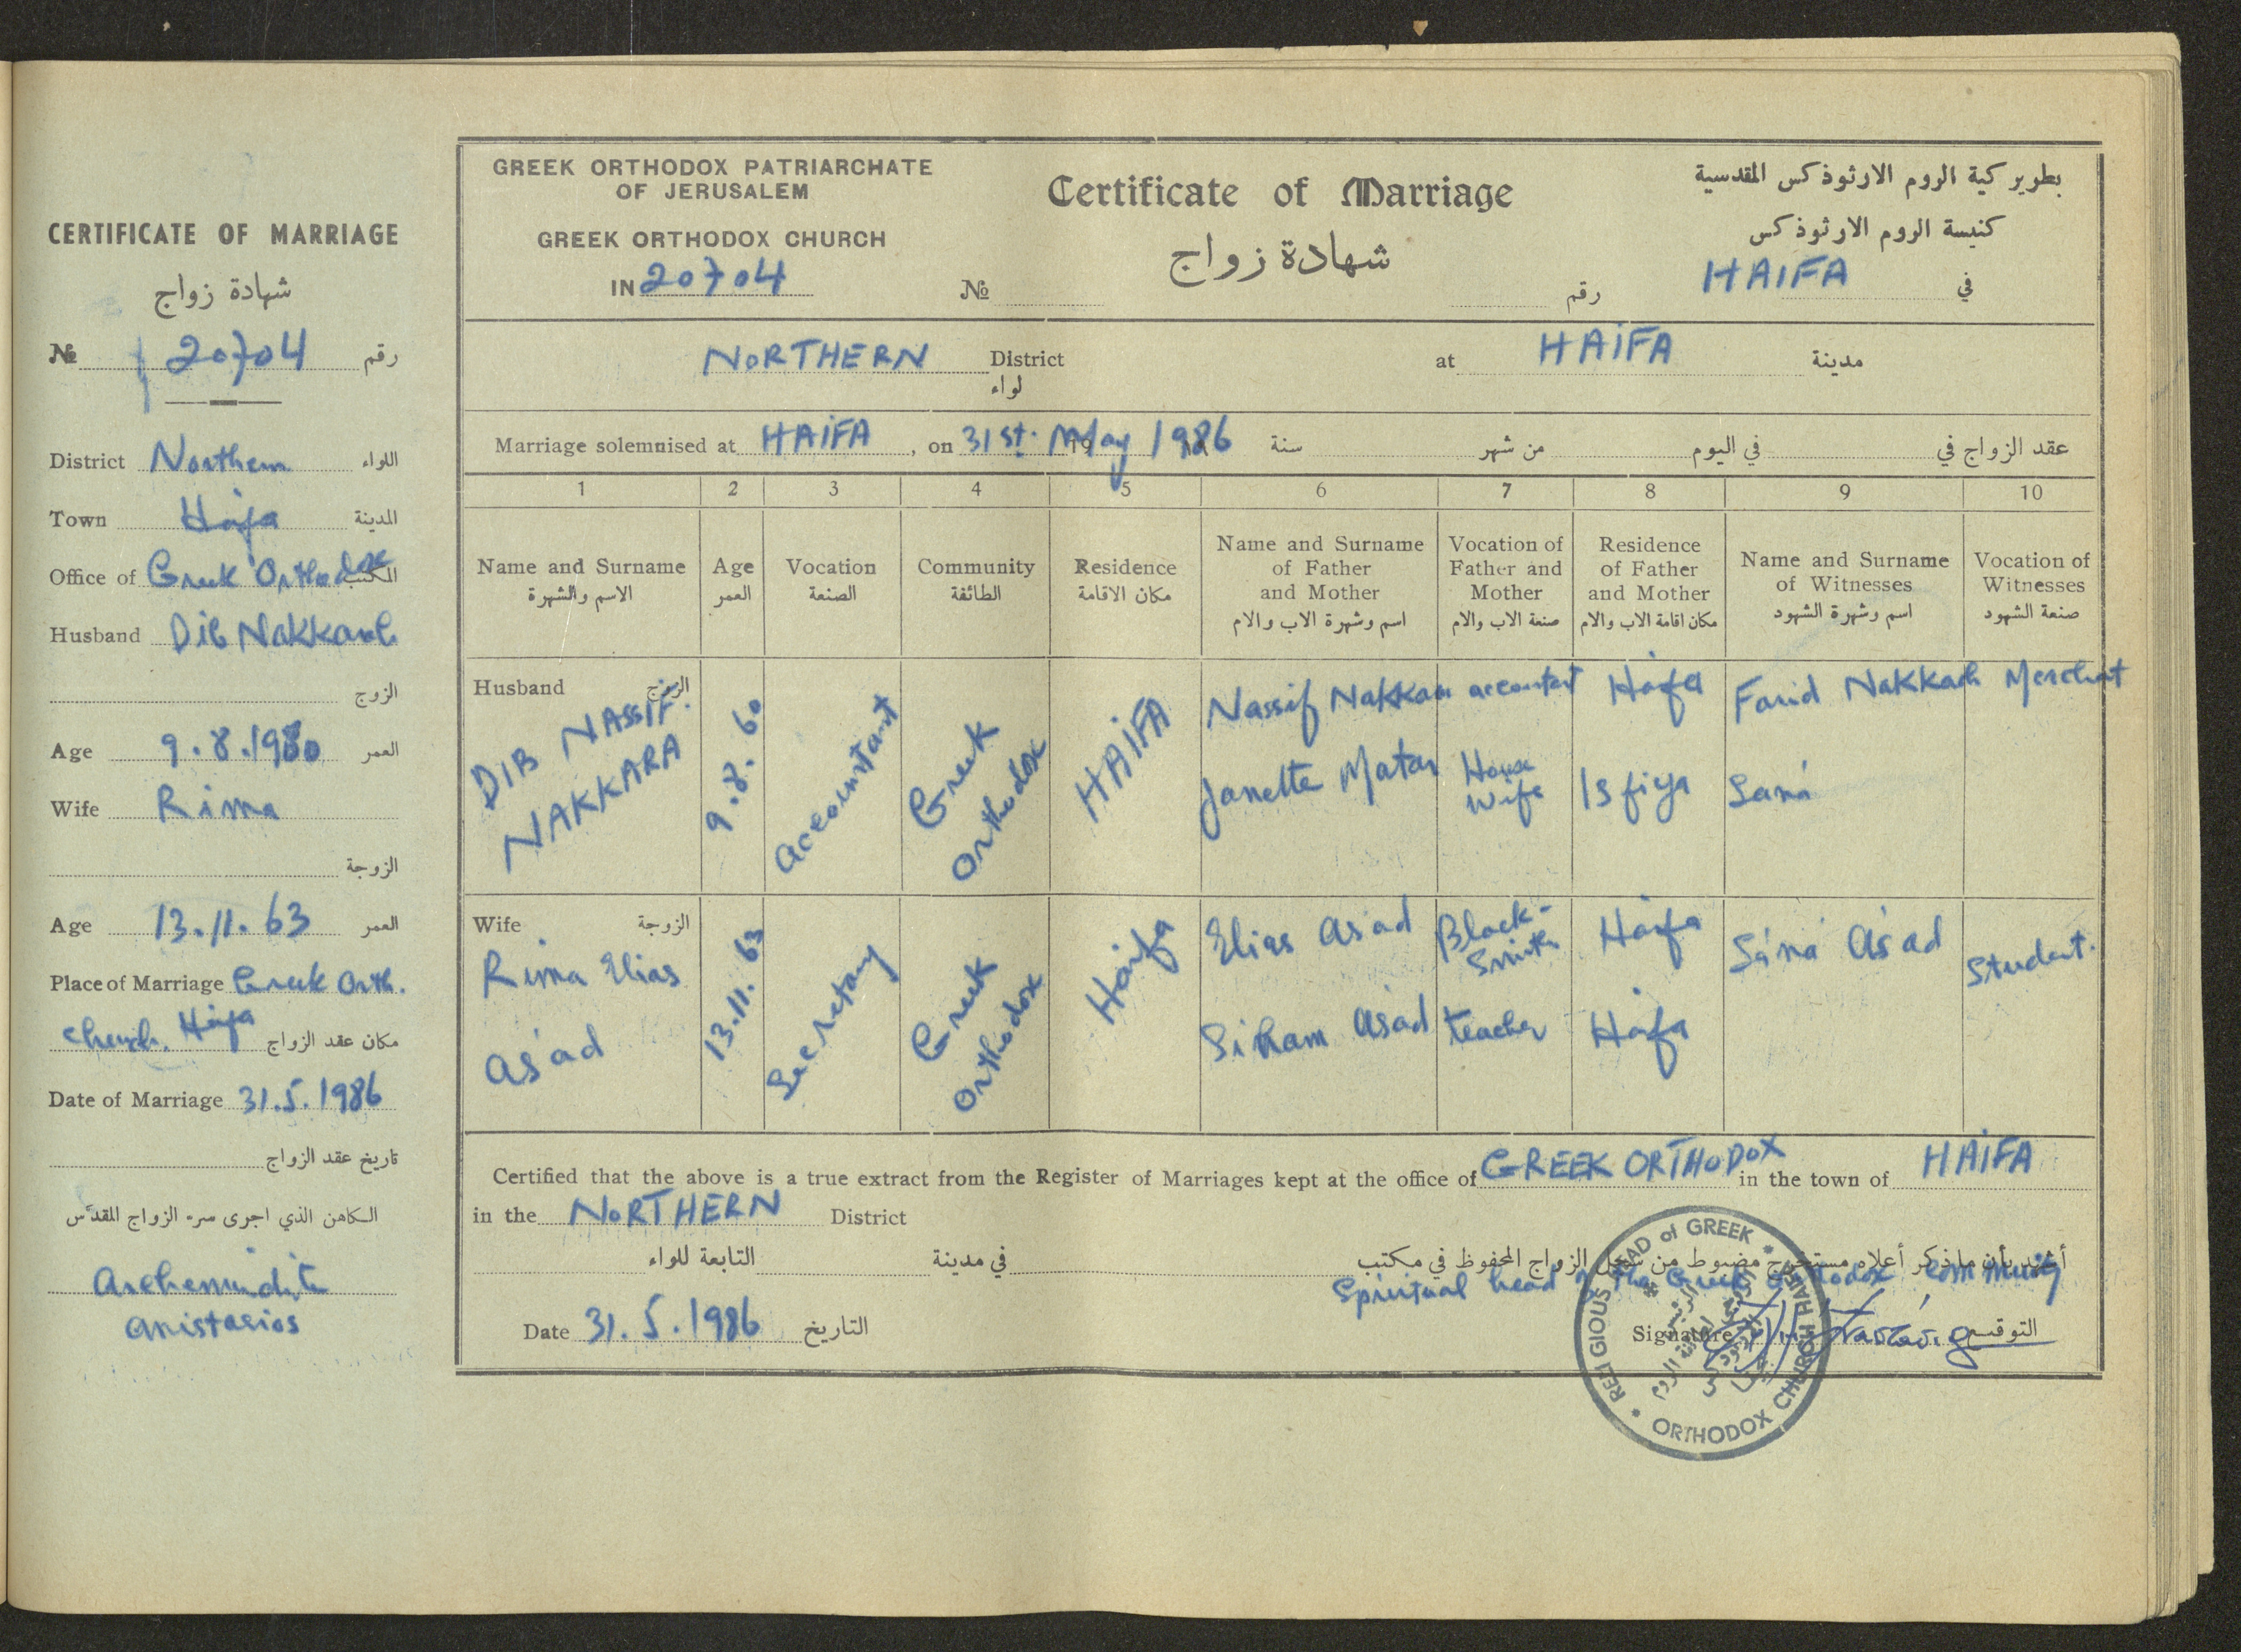 CERTIFICATE OF MARRIAGE
شهادة زواج
№ 20704 رقم
District Northern اللواء
Town Haifa المدينة
Office of Greek Orthodox المكتب
Husband Dib Nakkara
الزوج
Age 9.8.1960 العمر
Wife Rima
الزوجة
Age 13.11.63 العمر
Place of Marriage Greek Orth.
Church. Haifa مكان عقد الزواج
Date of Marriage 31.5.1986
تاريخ عقد الزواج
الكاهن الذي اجرى سر الزواج المقدس
Archemindite
Anistasios
GREEK ORTHODOX PATRIARCHATE
OF JERUSALEM
GREEK ORTHODOX CHURCH
IN 20704
Certificate of Marriage
شهادة زواج
№ رقم
بطوير كية الروم الارثوذكس المقدسية
كنيسة الروم الارثوذكس
HAIFA في
NORTHERN District at HAIFA مدينة
لواء
Marriage solemnised at HAIFA, on 31st. May 1986 سنة من شهر في اليوم عقد الزواج في
1 2 3 4 5 6 7 8 9 10
Name and Surname
الاسم والشهرة
Age
العمر
Vocation
الصنعة
Community
الطائفة
Residence
مكان الاقامة
Name and Surname
of Father
and Mother
اسم وشهرة الاب والام
Vocation of
Father and
Mother
صنعة الاب والام
Residence
of Father
and Mother
مكان اقامة الاب والام
Name and Surname
of Witnesses
اسم وشهرة الشهود
Vocation of
Witnesses
صنعة الشهود
Husband الزوج
DIB NASSIF.
NAKKARA
9.8.60
Accountant
Greek
Orthodox
HAIFA
Nassif Nakkara accountant Haifa Farid Nakkash Merchat
Janette Matar House Wife Isfiya Saná
Wife الزوجة
Rima Elias
As'ad
13.11.63
Secretary
Greek
Orthodox
Haifa
Elias As'ad Black-Smith Haifa Sáná As'ad Student.
Siham As'ad teacher Haifa
Certified that the above is a true extract from the Register of Marriages kept at the office of GREEK ORTHODOX in the town of HAIFA
in the NORTHERN District
التابعة للواء في مدينة أشهد بأن ما ذكر أعلاه مستخرج مضبوط من سجل الزواج المحفوظ في مكتب
Spiritual head of the Greek Orthodox community
Date 31.5.1986 التاريخ
Signature التوقيع
RELIGIOUS HEAD of GREEK
ORTHODOX CHURCH HAIFA